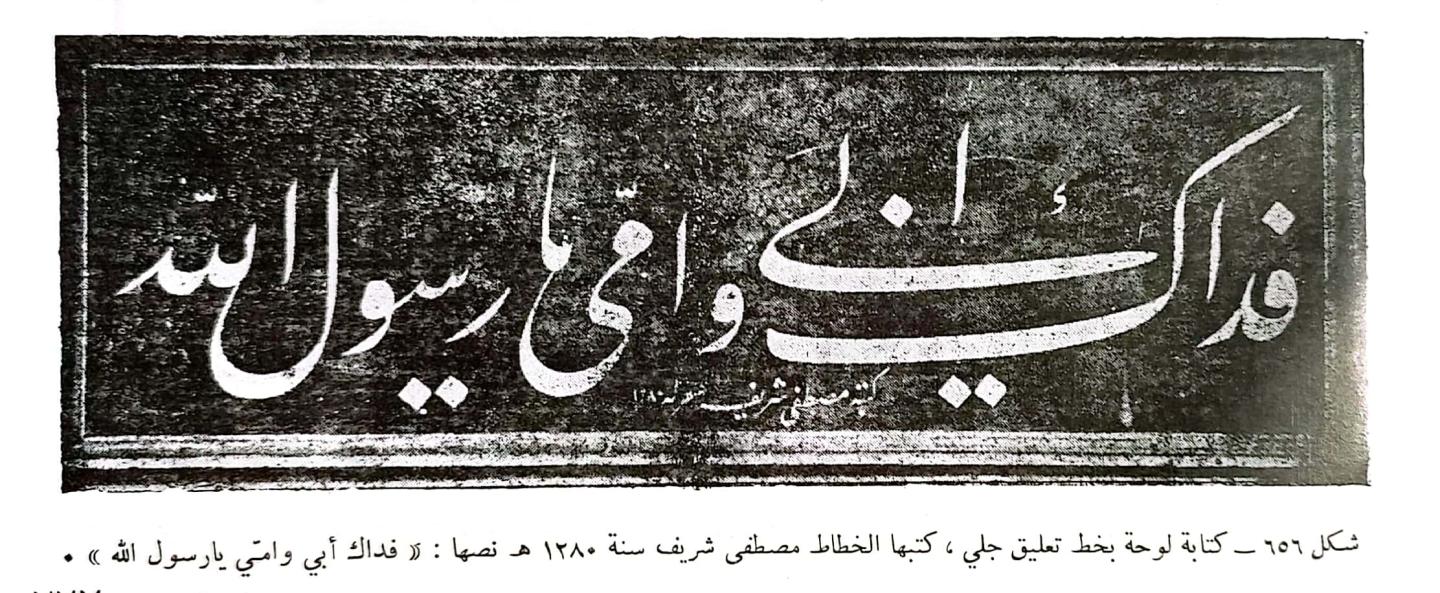 فداك ابي وامّي يا رسول اللّه
كتبه مصطفى شريف سنة ١٢٨٠
شكل ٦٥٦ – كتابة لوحة بخط تعليق جلي ، كتبها الخطاط مصطفى شريف سنة ١٢٨٠ هـ نصها : « فداك أبي وامّي يارسول الله » •